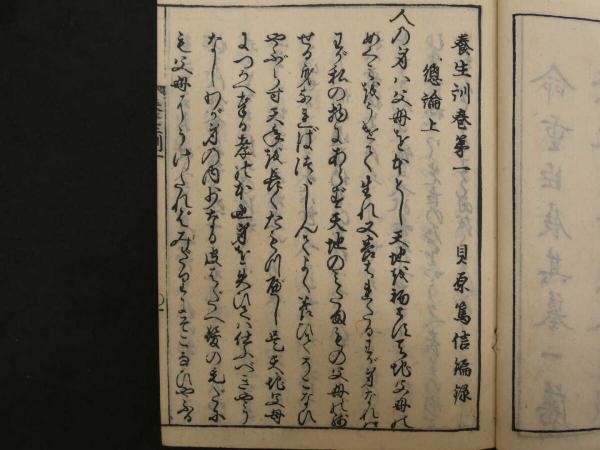 養生訓巻第一　貝原篤信編録
總論上
人の身は父母を本とし天地を初とす天地父母の
めぐみをうけて生れ又養はれたるわが身なれば
わが私の物にあらず天地のみたまもの父母の残
せる身なればつゝしんでよく養ひてそこなひ
やぶらず天年を長くたもつべし是天地父母
につかへ奉る孝の本也身を失ひては仕ふべきやう
なしわが身の内少なる皮はだへ髪の毛だに
も父母にうけたればみだりにそこなひやぶる